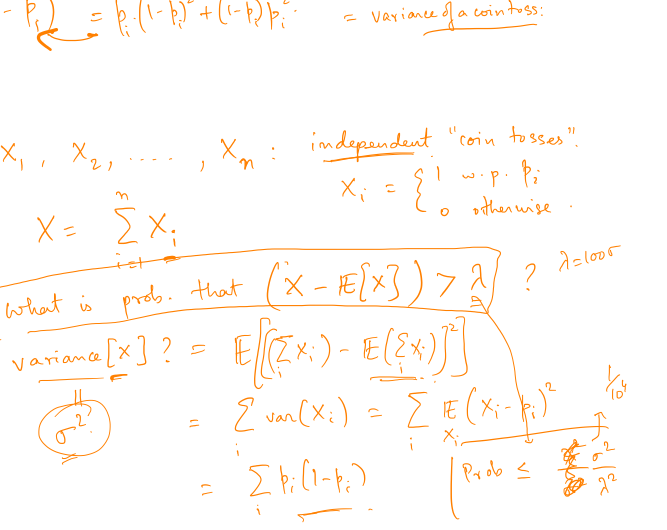 - p_i) = p_i (1-p_i)^2 + (1-p_i) p_i^2 = variance of a coin toss:
X_1, X_2, ...., X_n : independent "coin tosses".
X_i = { 1 w.p. p_i
0 otherwise.
X = \sum_{i=1}^{n} X_i
What is prob. that (X - E[X]) > λ ? λ=100σ
variance[X] ? = E[((\sum_i X_i) - E(\sum_i X_i))^2]
σ^2 = \sum_i var(X_i) = \sum_i E_{X_i} (X_i - p_i)^2
1/10^4
= \sum_i p_i(1-p_i)
Prob ≤ σ^2/λ^2